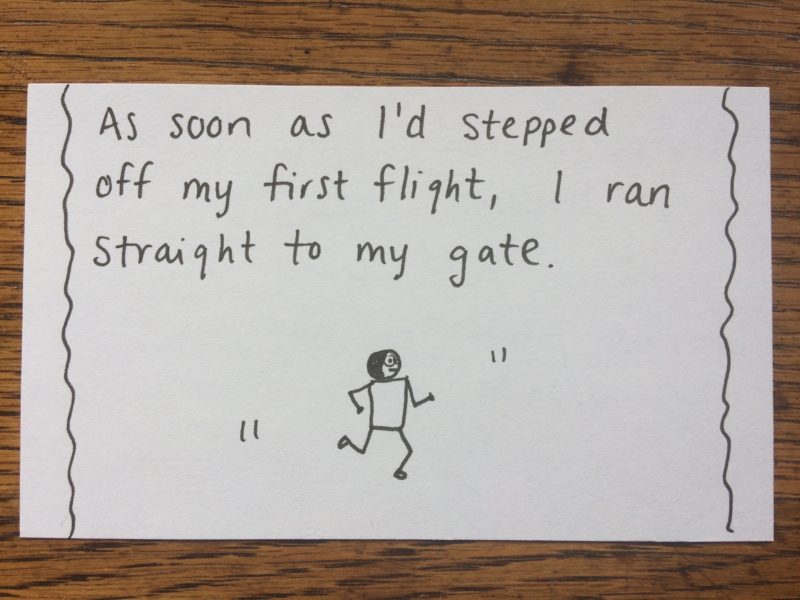 As soon as I'd stepped
off my first flight, I ran
straight to my gate.